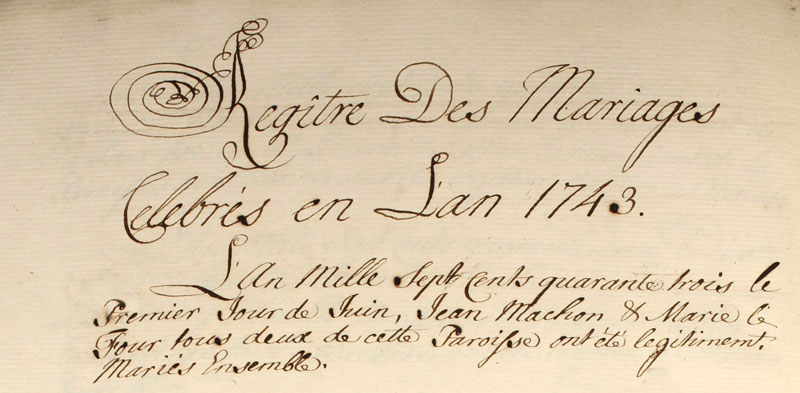 Regître Des Mariages
Celebrés en L'an 1743.
L'An Mille Sept Cents quarante trois le
Premier Jour de Juin, Jean Machon & Marie le
Four tous deux de cette Paroisse ont été legitimemt.
Mariés Ensemble.